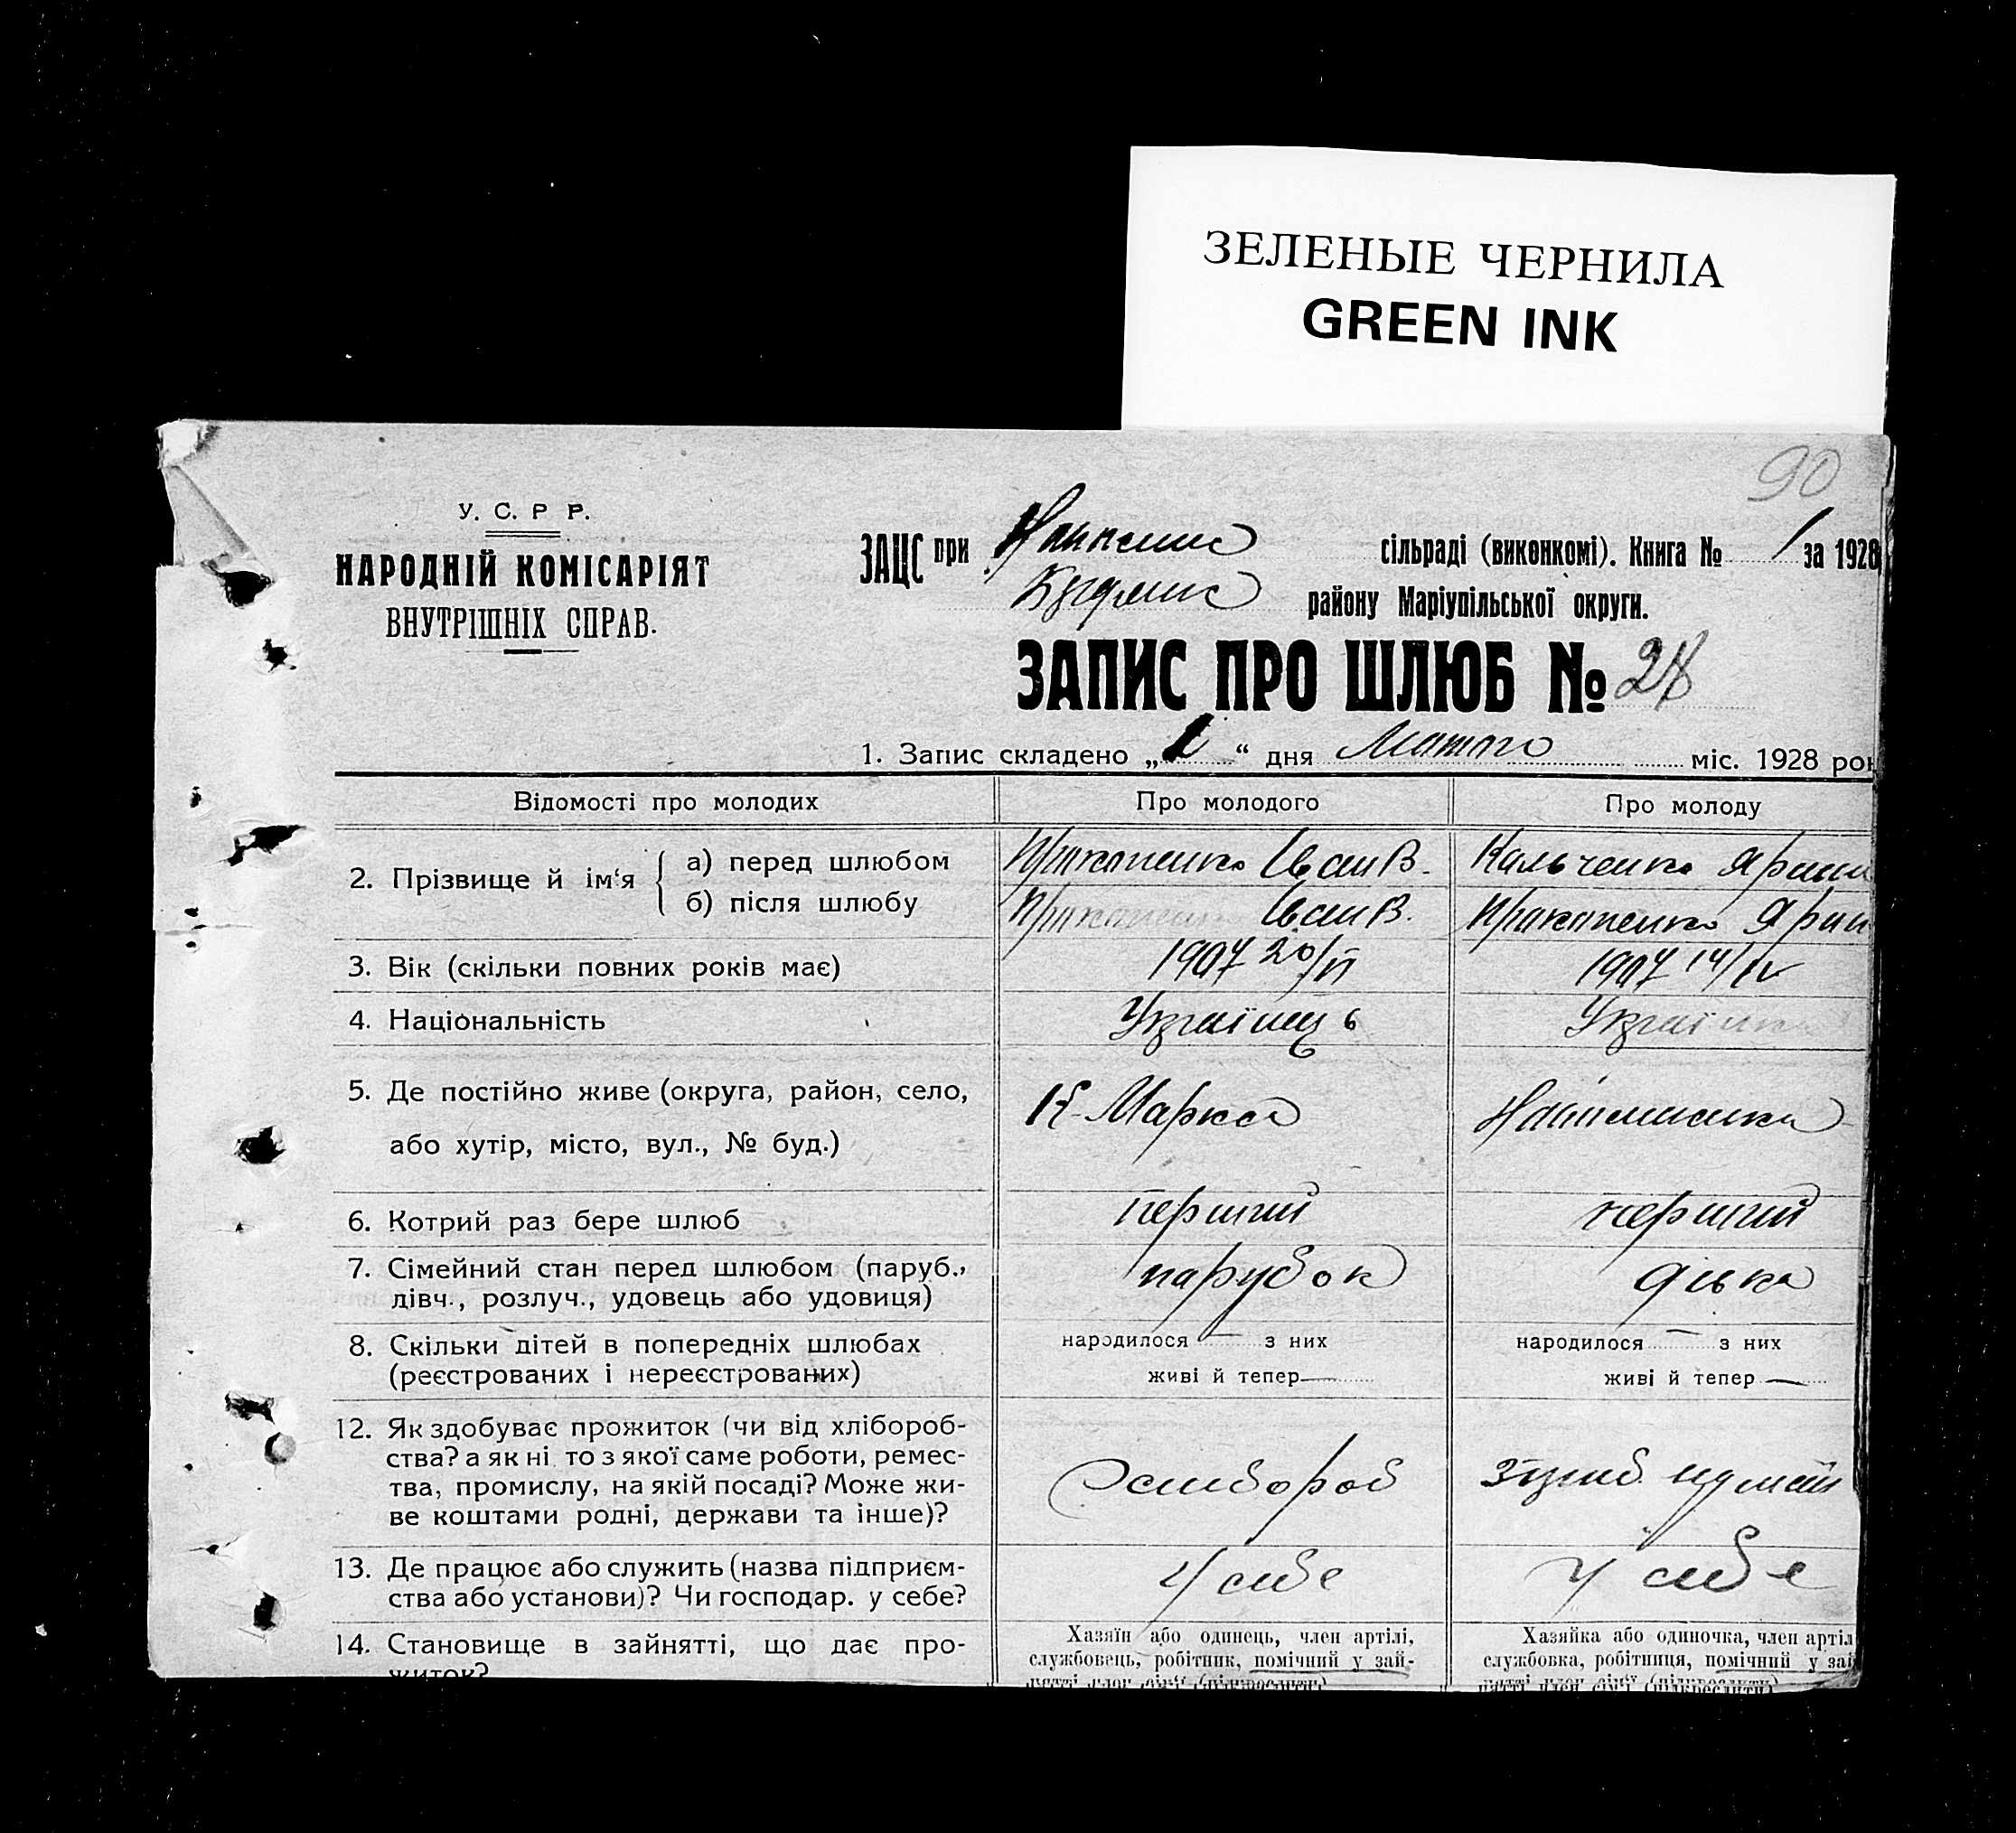 ЗЕЛЕНЫЕ ЧЕРНИЛА
GREEN INK
90
У. С. Р Р.
НАРОДНІЙ КОМІСАРІЯТ
ВНУТРІШНІХ СПРАВ.
ЗАЦС при сільраді (виконкомі). Книга № 1 за 1928
району Маріупільської округи.
ЗАПИС ПРО ШЛЮБ № 28
1. Запис складено „1“ дня Лютого міс. 1928 рок
Відомості про молодих Про молодого Про молоду
2. Прізвище й ім‘я
а) перед шлюбом Прокопенко Іван В. Кальченко Ярина
б) після шлюбу Прокопенко Іван В. Прокопенко Ярин
3. Вік (скільки повних років має) 1907 20/VI 1907 14/IV
4. Національність Українць Українка
5. Де постійно живе (округа, район, село,
або хутір, місто, вул., № буд.) К-Маркса
6. Котрий раз бере шлюб перший перший
7. Сімейний стан перед шлюбом (паруб., парубок дівка
дівч., розлуч., удовець або удовиця)
8. Скільки дітей в попередніх шлюбах народилося — з них народилося — з них
(реєстрованих і нереєстрованих) живі й тепер — живі й тепер —
12. Як здобуває прожиток (чи від хлібороб-
ства? а як ні то з якої саме роботи, ремес-
тва, промислу, на якій посаді? Може жи- хлибороб
ве коштами родні, держави та інше)?
13. Де працює або служить (назва підприєм- У себе У себе
ства або установи)? Чи господар. у себе?
14. Становище в зайнятті, що дає про-
житок?
Хазяїн або одинець, член артілі,
службовець, робітник, помічний у зай-
нятті член сім‘ї (підкреслити)
Хазяйка або одиночка, член артіл
службовка, робітниця, помічний у зай
нятті член сім‘ї (підкреслити)